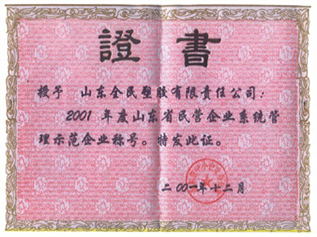 證書
授予 山东全民塑胶有限责任公司:
2001 年度山东省民营企业系统管
理示范企业称号。特发此证。
二00一年十二月